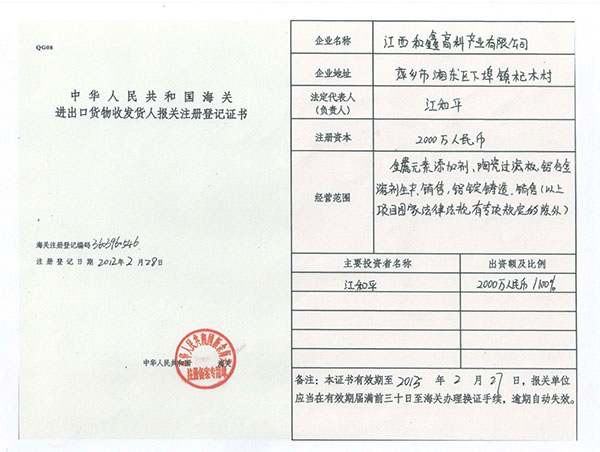 QG08
中华人民共和国海关
进出口货物收发货人报关注册登记证书
海关注册登记编码
注册登记日期 2012年2月28日
中华人民共和国 海关
注册备案专用章
企业名称 江西和鑫高科产业有限公司
企业地址 萍乡市湘东区下埠镇杞木村
法定代表人
(负责人) 江和平
注册资本 2000万人民币
经营范围
金属元素添加剂、陶瓷过滤板、铝合金
溶剂生产、销售,铝锭铸造、销售(以上
项目国家法律法规有专项规定的除外)
主要投资者名称 出资额及比例
江和平 2000万人民币/100%
备注:本证书有效期至2015年2月27日,报关单位
应当在有效期届满前三十日至海关办理换证手续,逾期自动失效。